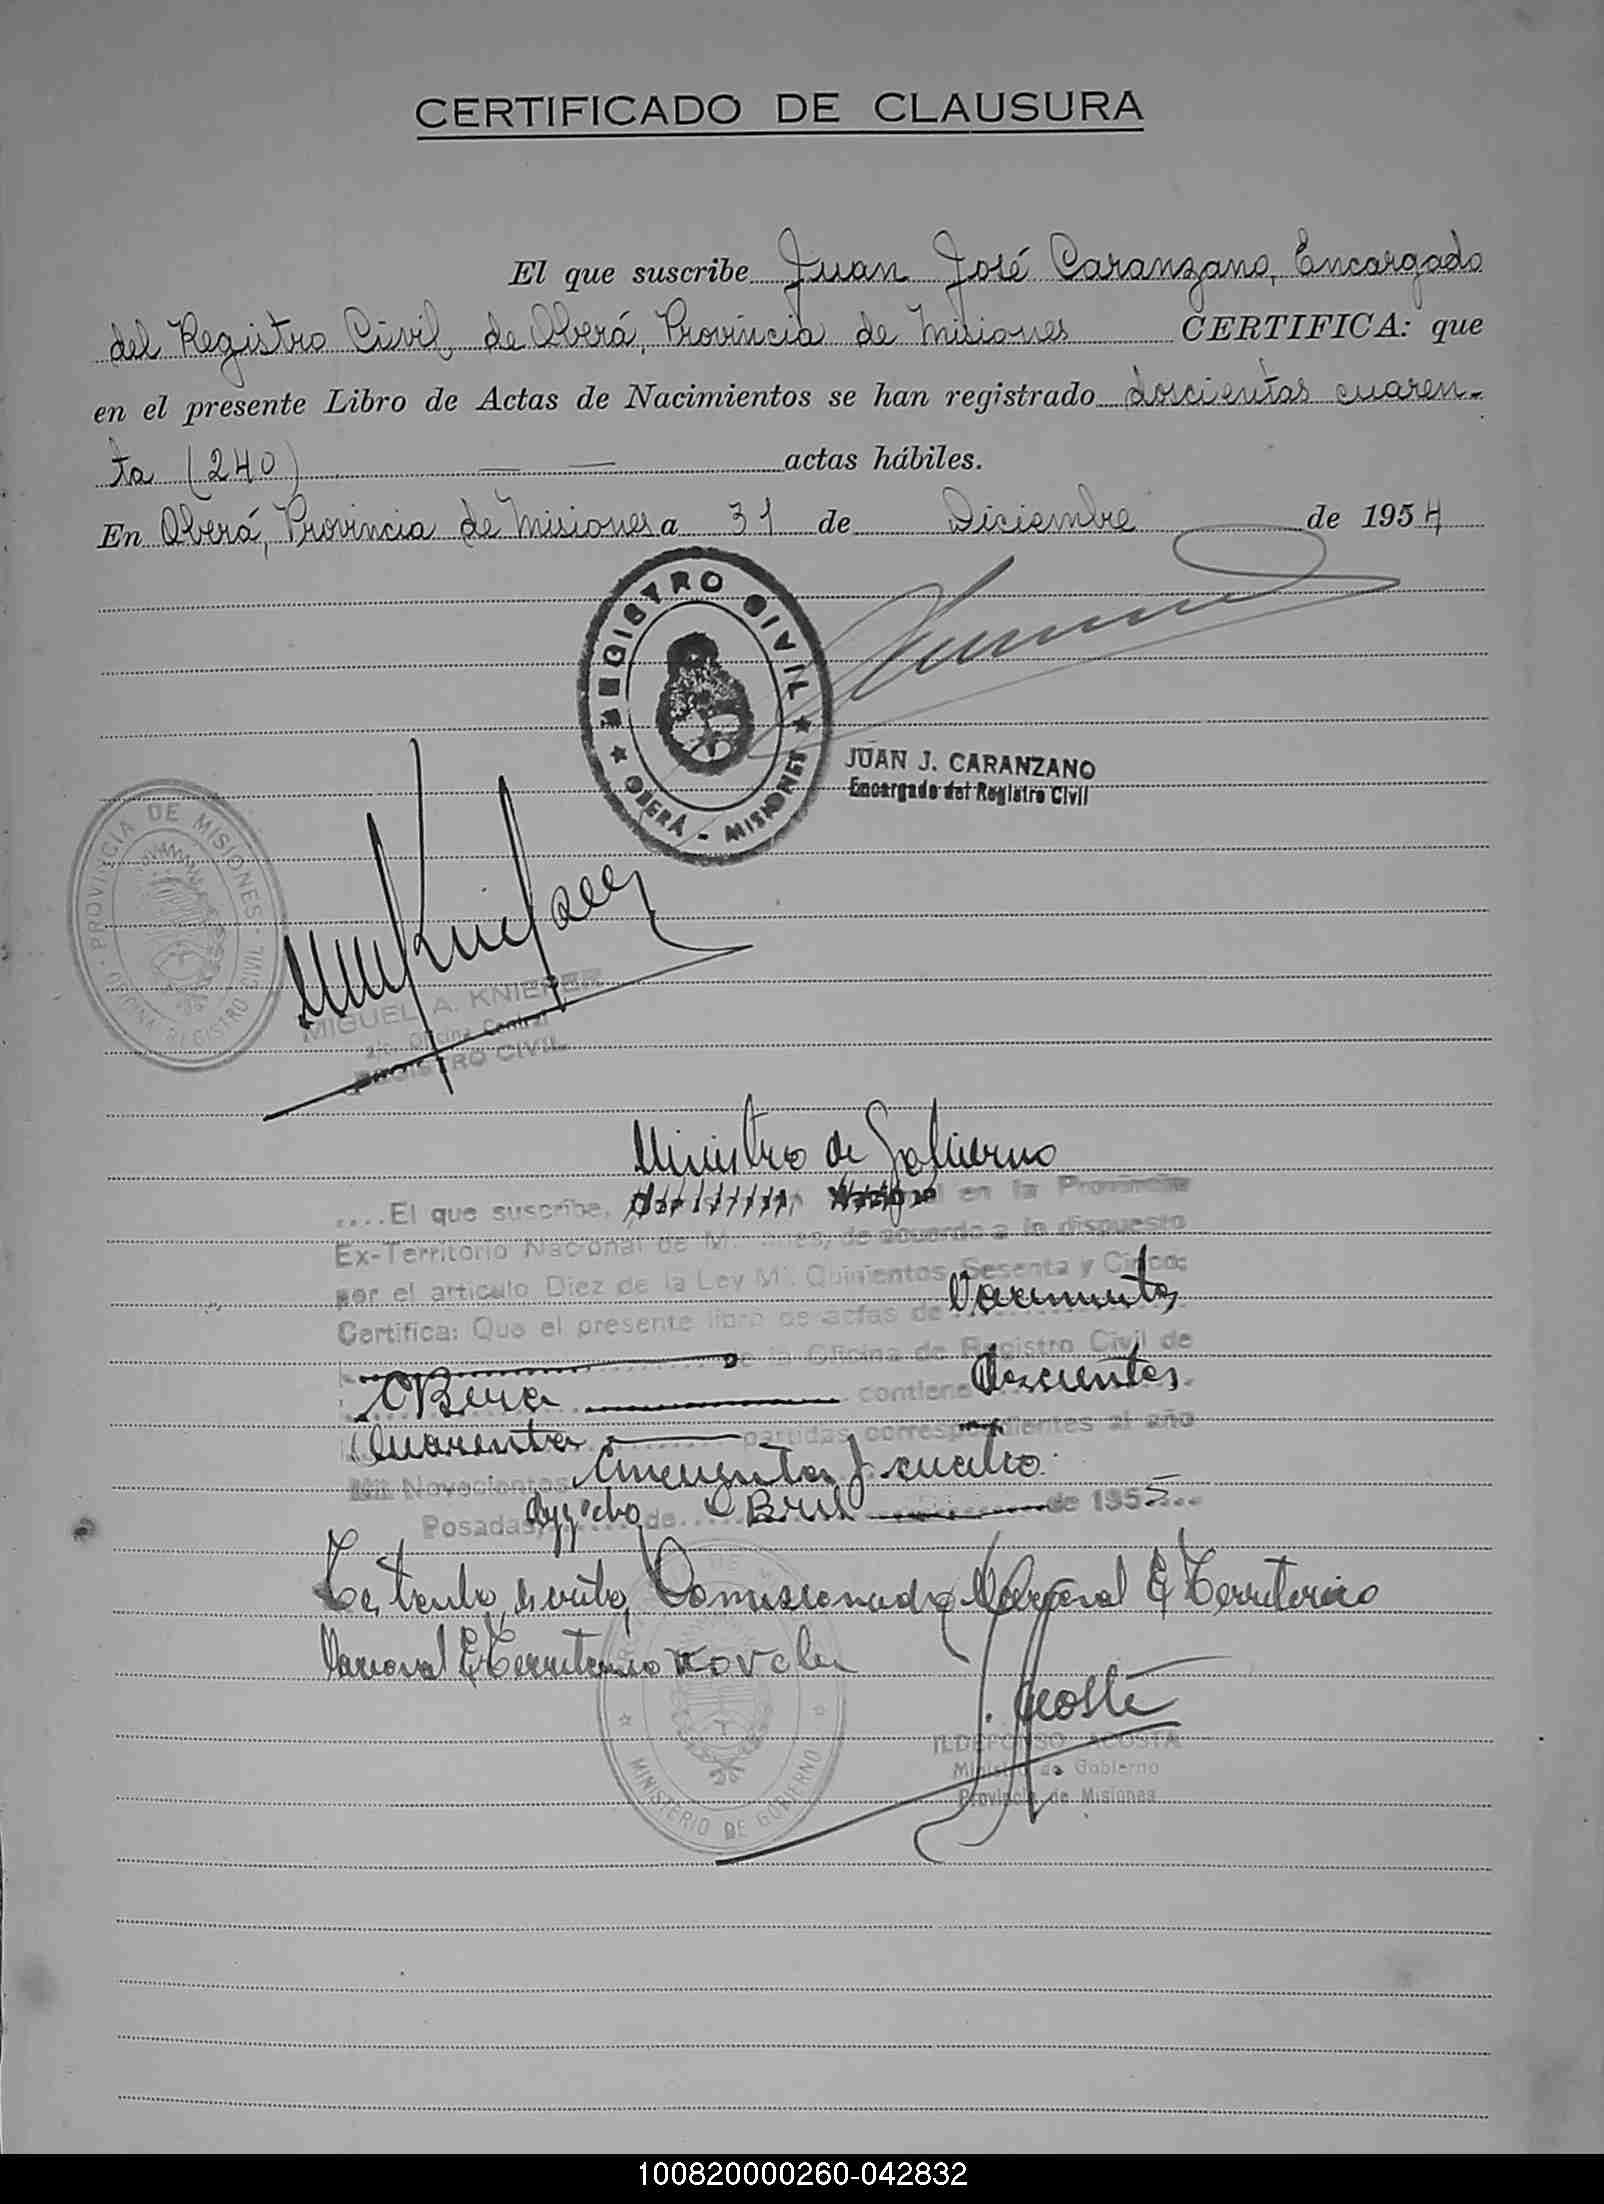 CERTIFICADO DE CLAUSURA
El que suscribe Juan José Caranzano, Encargado
del Registro Civil, de Oberá, Provincia de Misiones CERTIFICA: que
en el presente Libro de Actas de Nacimientos se han registrado doscientas cuaren-
ta (240) — — actas hábiles.
En Oberá, Provincia de Misiones a 31 de Diciembre de 1954
REGISTRO CIVIL
OBERÁ - MISIONES
JUAN J. CARANZANO
Encargado del Registro Civil
PROVINCIA DE MISIONES
OFICINA REGISTRO CIVIL
MIGUEL A. KNIEPER
Oficina Central
REGISTRO CIVIL
Ministro de Gobierno
....El que suscribe, en la Provincia
Ex-Territorio Nacional de Misiones, de acuerdo a lo dispuesto
por el artículo Diez de la Ley Quinientos Sesenta y Cinco;
Certifica: Que el presente libro de actas de Nacimientos
de la Oficina de Registro Civil de
Obera contiene doscientos
cuarenta partidas correspondientes al año
Mil Novecientos Cincuenta y cuatro.
Posadas, de Abril de 1955
Testado, Nacional Ex Territorio
Nacional Ex Territorio no vale
MINISTERIO DE GOBIERNO
I. Acosta
ILDEFONSO ACOSTA
Ministro de Gobierno
Provincia de Misiones
100820000260-042832